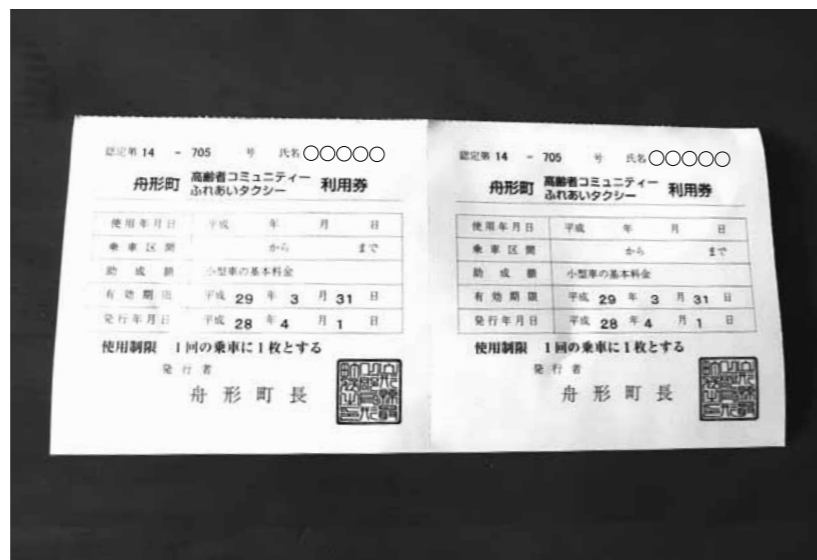 認定第 14 - 705 号 氏名 〇〇〇〇〇
舟形町 高齢者コミュニティー
ふれあいタクシー 利用券
使用年月日 平成 年 月 日
乗車区間 から まで
助成額 小型車の基本料金
有効期限 平成 29 年 3 月 31 日
発行年月日 平成 28 年 4 月 1 日
使用制限 1回の乗車に1枚とする
発行者
舟形町長
認定第 14 - 705 号 氏名 〇〇〇〇〇
舟形町 高齢者コミュニティー
ふれあいタクシー 利用券
使用年月日 平成 年 月 日
乗車区間 から まで
助成額 小型車の基本料金
有効期限 平成 29 年 3 月 31 日
発行年月日 平成 28 年 4 月 1 日
使用制限 1回の乗車に1枚とする
発行者
舟形町長